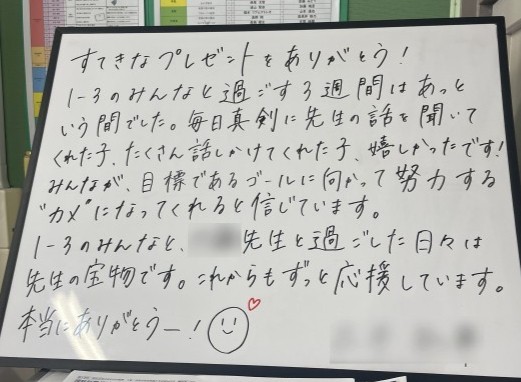 すてきなプレゼントをありがとう!
1-3のみんなと過ごす3週間はあっと
いう間でした。毎日真剣に先生の話を聞いて
くれた子、たくさん話しかけてくれた子、嬉しかったです!
みんなが、目標であるゴールに向かって努力する
"カメ"になってくれると信じています。
1-3のみんなと、先生と過ごした日々は
先生の宝物です。これからもずっと応援しています。
本当にありがとうー!